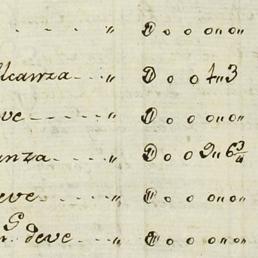 . . . . . „ D o o o„ o„
lcanza . . . „ D o o 4„ 3
ve . . . „ D o o o„ o„
anza . . . „ D o o 9„ 6 3/4
eve . . . „ D o o o„ o„
deve . . „ D o o o„ o„